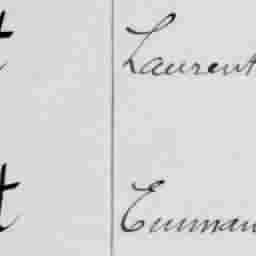 t Laurent
t Emman